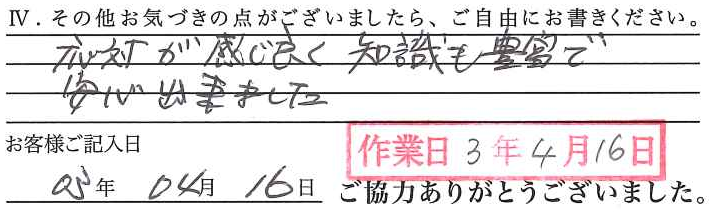 Ⅳ．その他お気づきの点がございましたら、ご自由にお書きください。
応対が感じ良く 知識も豊富で
安心出来ました
お客様ご記入日
作業日 3年4月16日
03年 04月 16日 ご協力ありがとうございました。